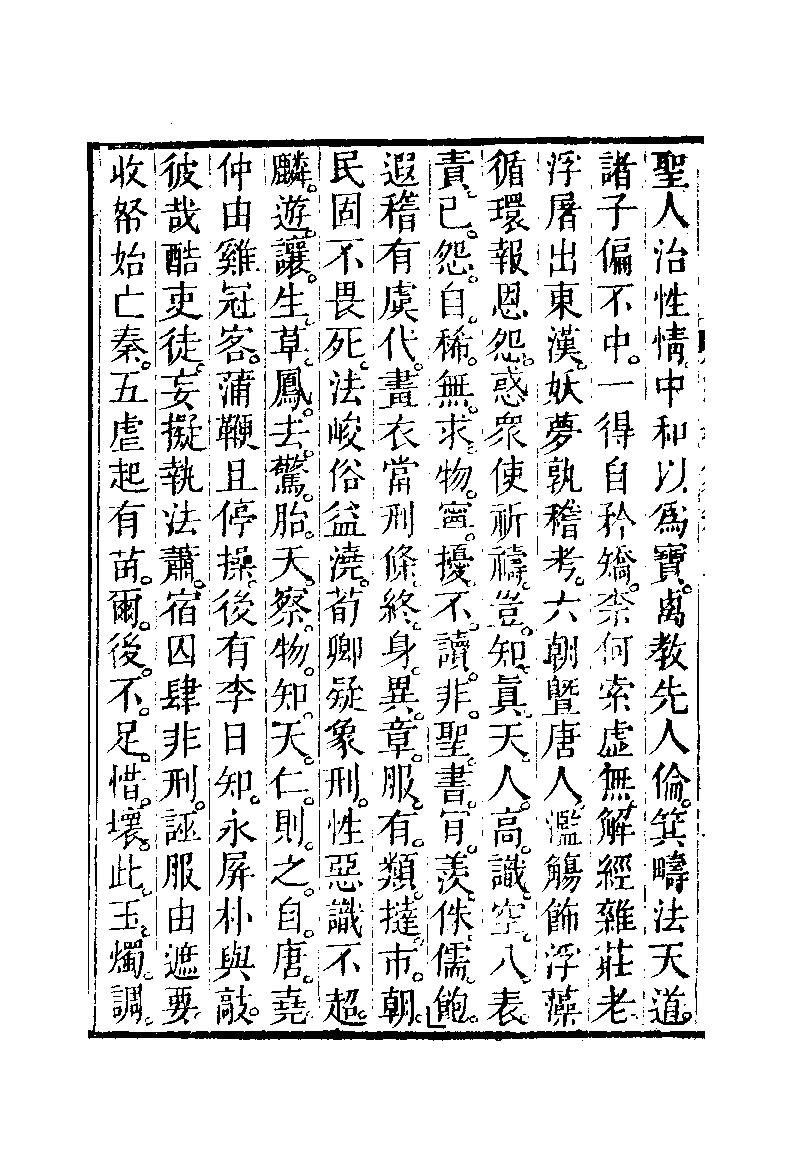 聖人治性情中和以爲寶。离教先人倫。箕疇法天道。
諸子偏不中。一得自矜矯。柰何索虛無解經雜莊老
浮屠出東漢。妖夢孰稽考。六朝曁唐人濫觴飾浮藻
循環報恩怨。惑衆使祈禱。豈知眞天人。高識空八表
責已。怨自稀。無求物。寧擾不讀非聖書。肎羨侏儒飽。
遐稽有虞代。畫衣當刑條終身異章服。有類撻市朝。
民固不畏死。法峻俗益澆。荀卿疑象刑。性惡識不超。
麟遊讓生草。鳳去驚胎夭。察物知天仁。則之自唐堯
仲由雞冠客。蒲鞭且停操。後有李日知。永屏朴與敲。
彼哉酷吏徒。妄擬執法蕭。宿囚肆非刑。誣服由遮要
收帑始亡秦。五虐起有苗。爾後不足惜。壞此玉燭調。